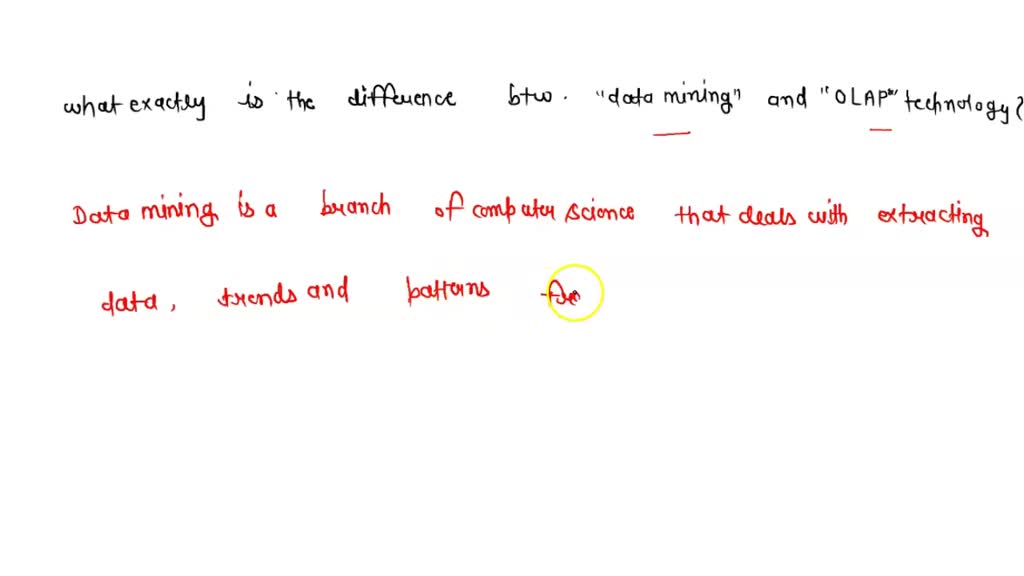 what exactly is the difference btw. "data mining" and "OLAP" technology?
Data mining is a branch of computer science that deals with extracting
data, trends and patterns